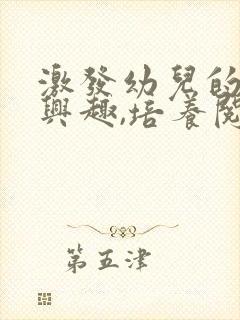 激發幼兒的
興趣,培養閱
第五津